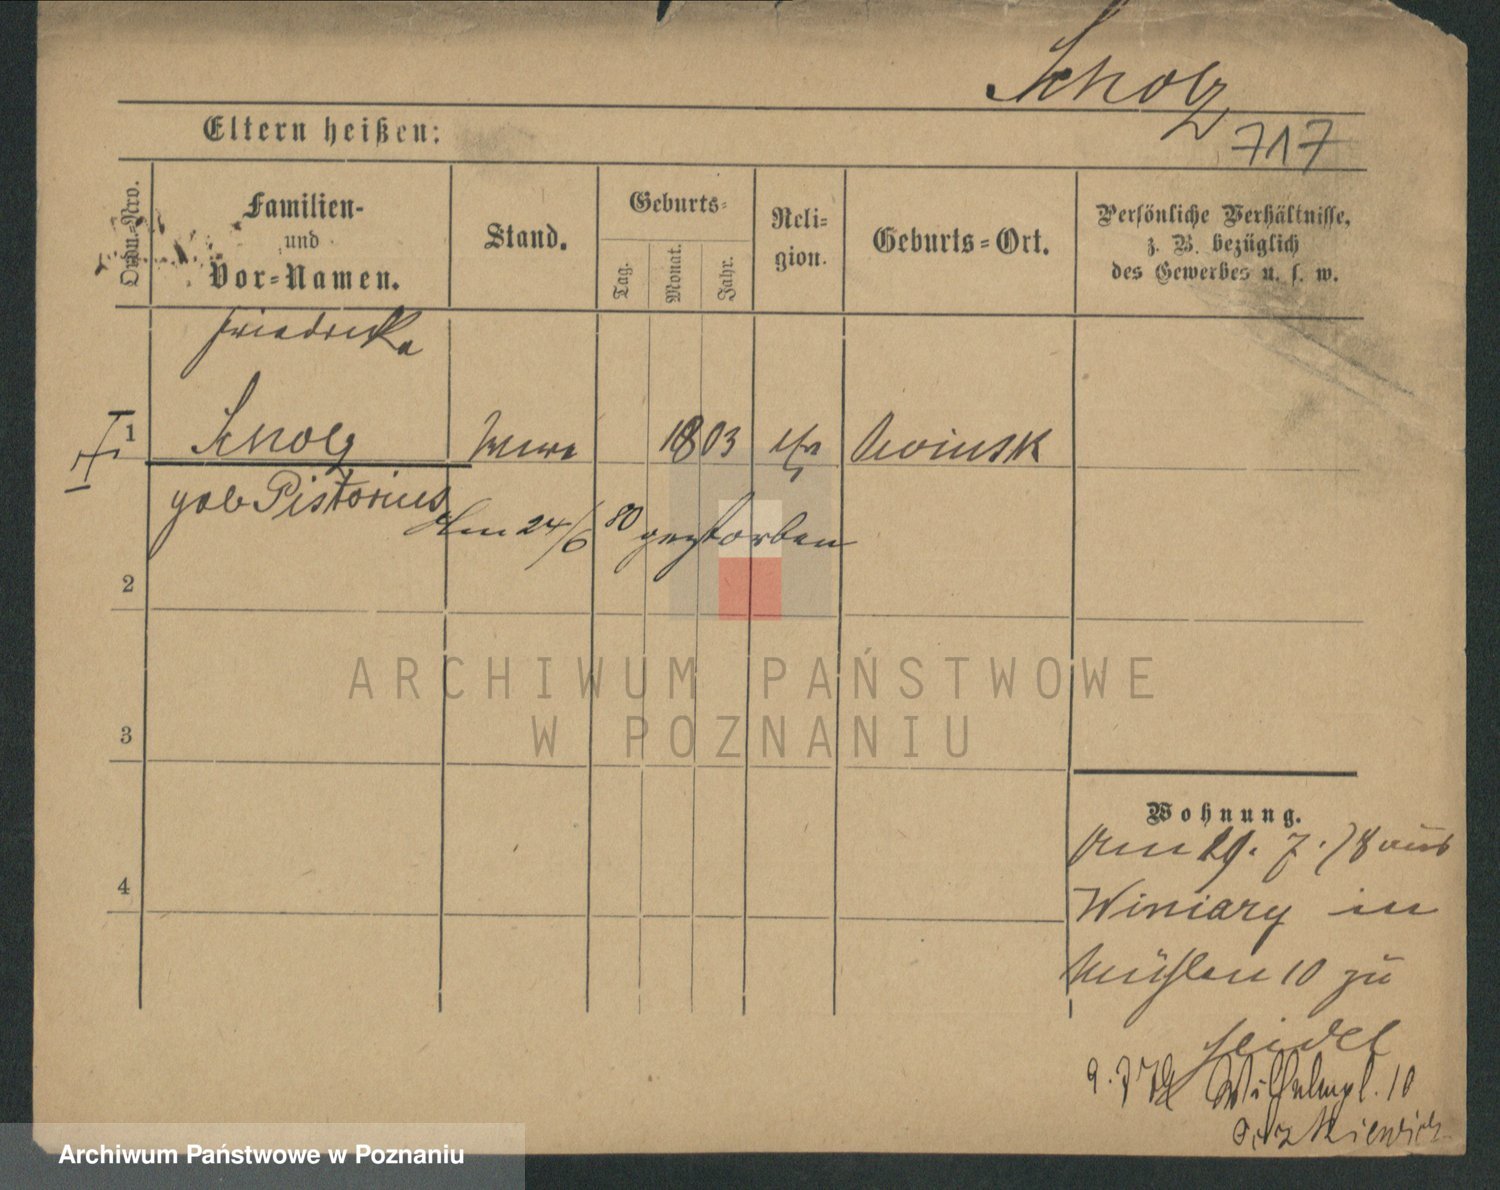 Scholz
717
Eltern heißen:
Ordn.-Nro.
Familien-
und
Vor-Namen.
Stand.
Geburts-
Tag.
Monat.
Jahr.
Reli-
gion.
Geburts-Ort.
Persönliche Verhältnisse,
z. B. bezüglich
des Gewerbes u. s. w.
Friedricka
1
Scholz
Wwe
1803
ev
geb Pistorius
Am 24/6 80 gestorben
2
3
4
Wohnung.
Am 29. 7. 78 aus
Winiary in
Mühlen 10 zu
Seidel
Wilhelmpl. 10
ARCHIWUM PAŃSTWOWE
W POZNANIU
Archiwum Państwowe w Poznaniu